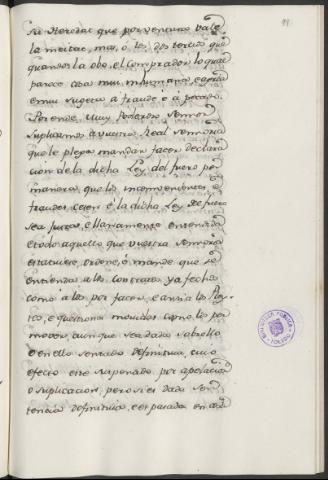 su Heredat que por ventura vale
la meitat, mas, ó les dos tercios que
quando la obo el Comprador lo qual
parece cosa mui inhumana
e mui sugeta a fraude è á pecado.
Por ende, Muy Poderoso Sennor
suplicamos á vuestra Real Sennoria
que le plega mandar facer declara
cion de la dicha Ley del fuero por
manera que los inconvenientes è
fraudes cesen è la dicha Ley de fuero
sea justa, e llanamente entendida
è todo aquello que vuestra Sennoria
estatuiere, ordene, è mande que se
entienda a los contratos ya fechos
como a los por facer, e ansi a los Pley-
tos, e questiones movidos como los por
mover, aunque sea dada sobrello
o en ello sentencia definitiva, cuio
efecto esté suspendido por apelacion
o suplicacion, pero si es dada Sen
tencia definitiva, e es pasada en
BIBLIOTECA PUBLICA
TOLEDO